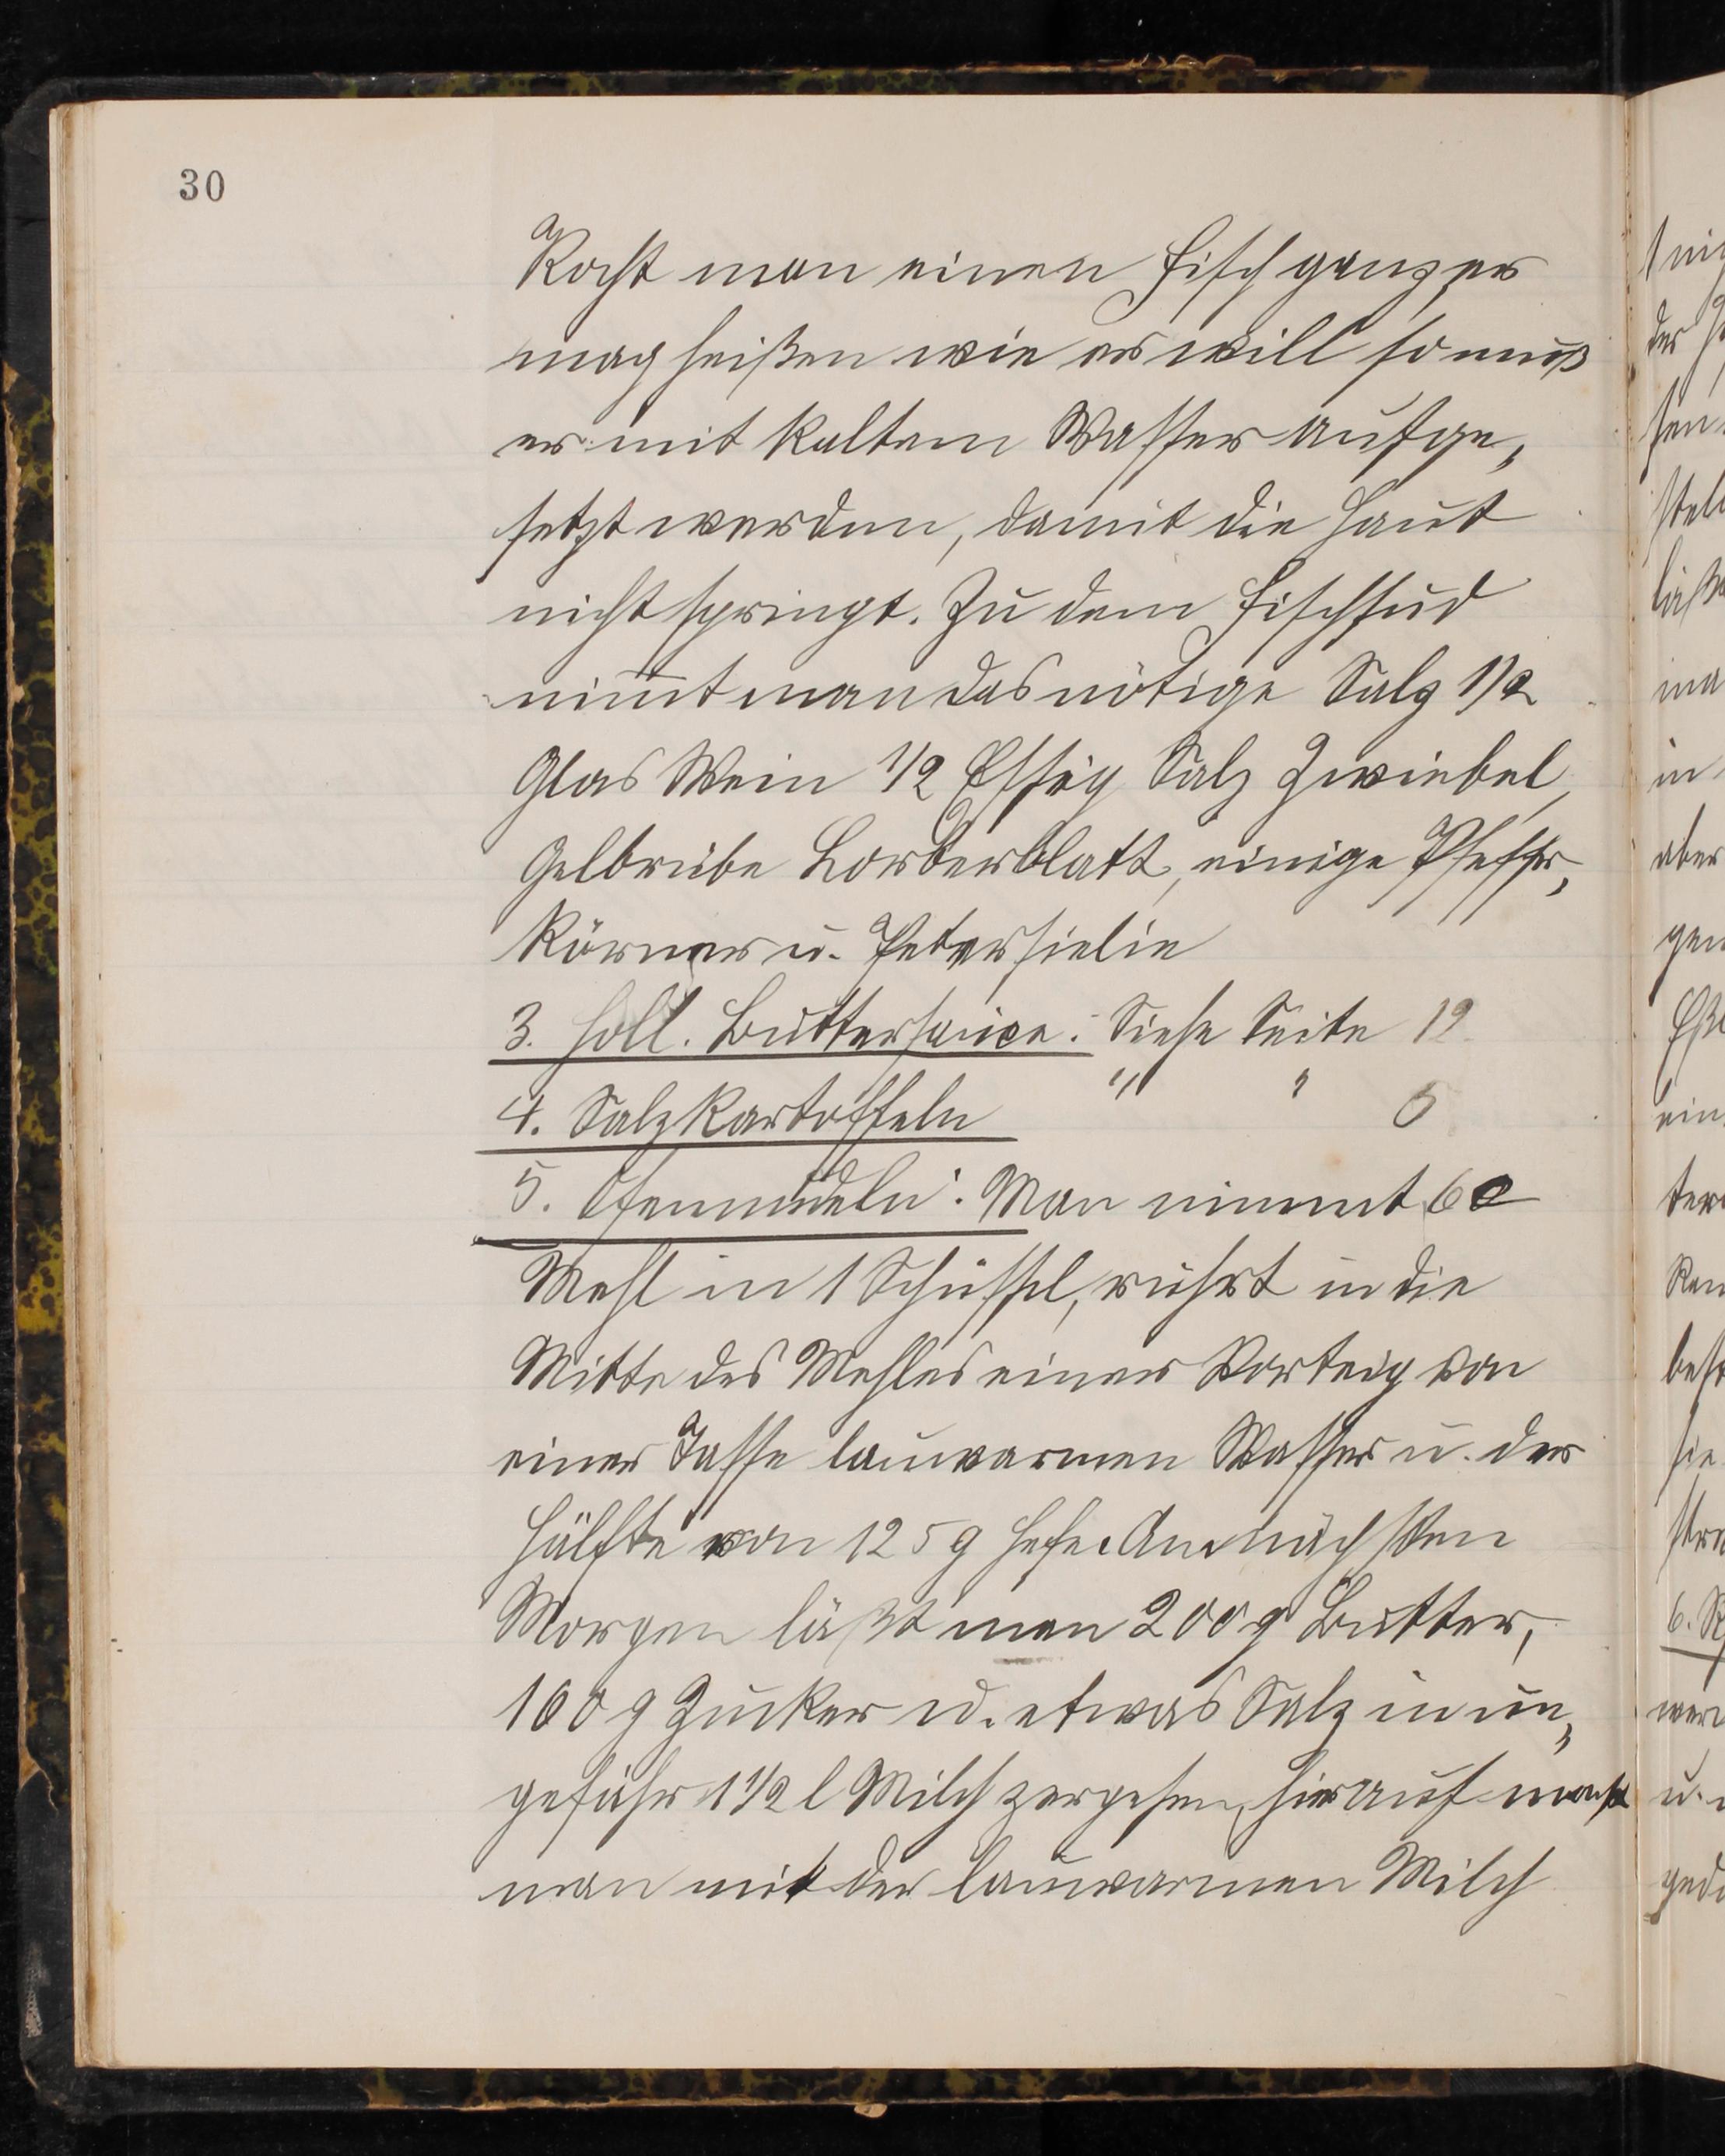 30
Kocht man einen Fisch ganz, er
mag heißen wie er will so muß
er mit kaltem Wasser aufge„
setzt werden, damit die Haut
nicht springt. Zu dem Fischsud
nim̅t man das nötige Salz 1/2
Glas Wein 1/2 Essig Salz Zwiebel,
Gelbrübe Lorberblatt, einige Pfeffer„
körner u. Petersielie
3. Holl. Buttersauce: Siehe Seite 19
4. Salzkartoffeln " " 5
5. Ofennudeln: Man nimmt 6 l
Mehl in 1 Schüssel, rührt in die
Mitte des Mehles einen Vorteig von
einer Tasse lauwarmen Wasser u. der
Hälfte von 125 g Hefe. Am nächsten
Morgen läßt man 200 g Butter,
100 g Zucker u. etwas Salz in un„
gefähr 1 1/2 l Milch zergehen, hierauf macht
man mit der lauwarmen Milch